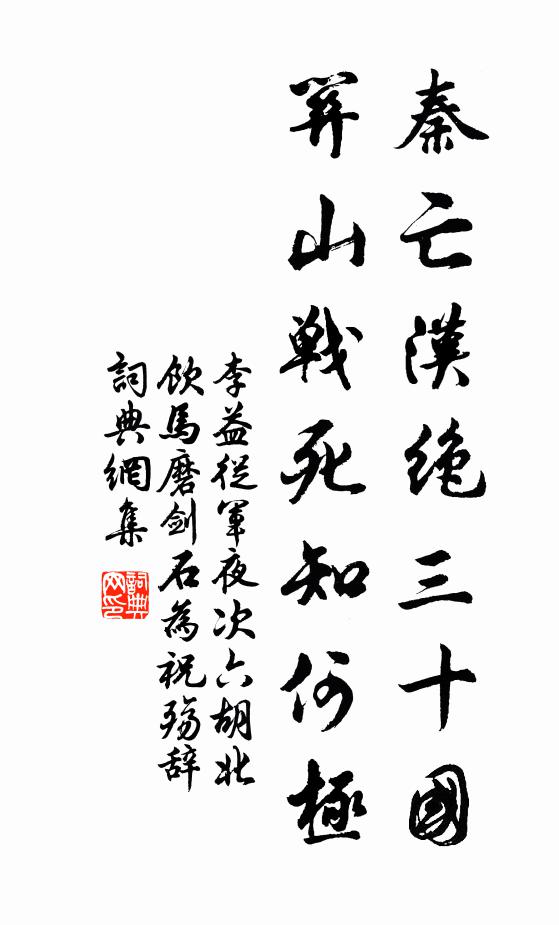 秦亡漢絶三十國
關山戰死知何極
李益從軍夜次六胡北
飲馬磨劍石為祝殤辞
詞典網集
詞典网印